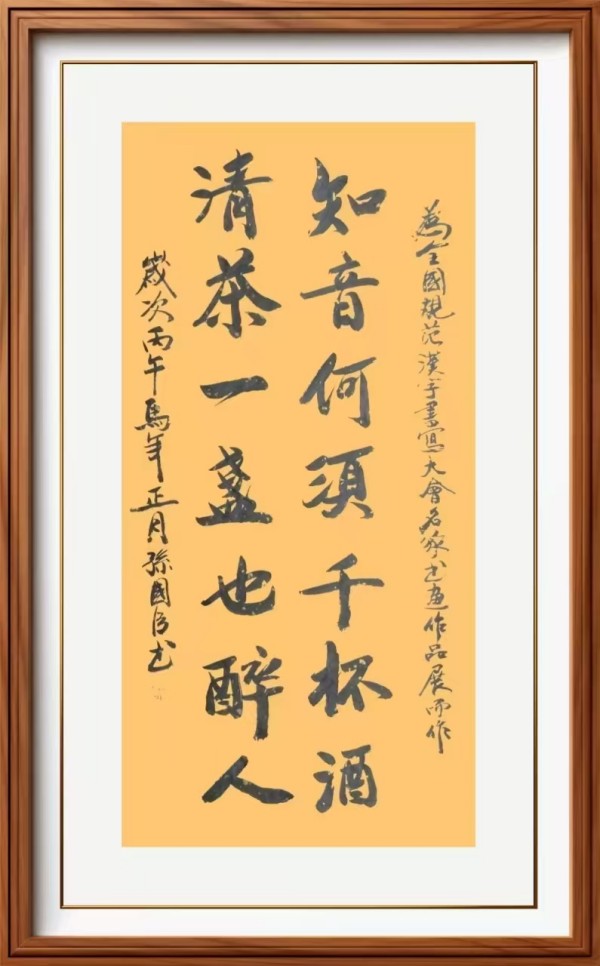 為全國規范漢字書寫大會名家书畫作品展而作
知音何須千杯酒
清茶一盞也醉人
歲次丙午馬年正月孫國臣书